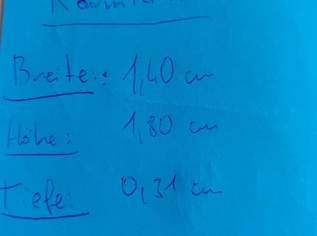 Breite: 1,40 cm
Höhe: 1,80 cm
Tiefe: 0,31 cm